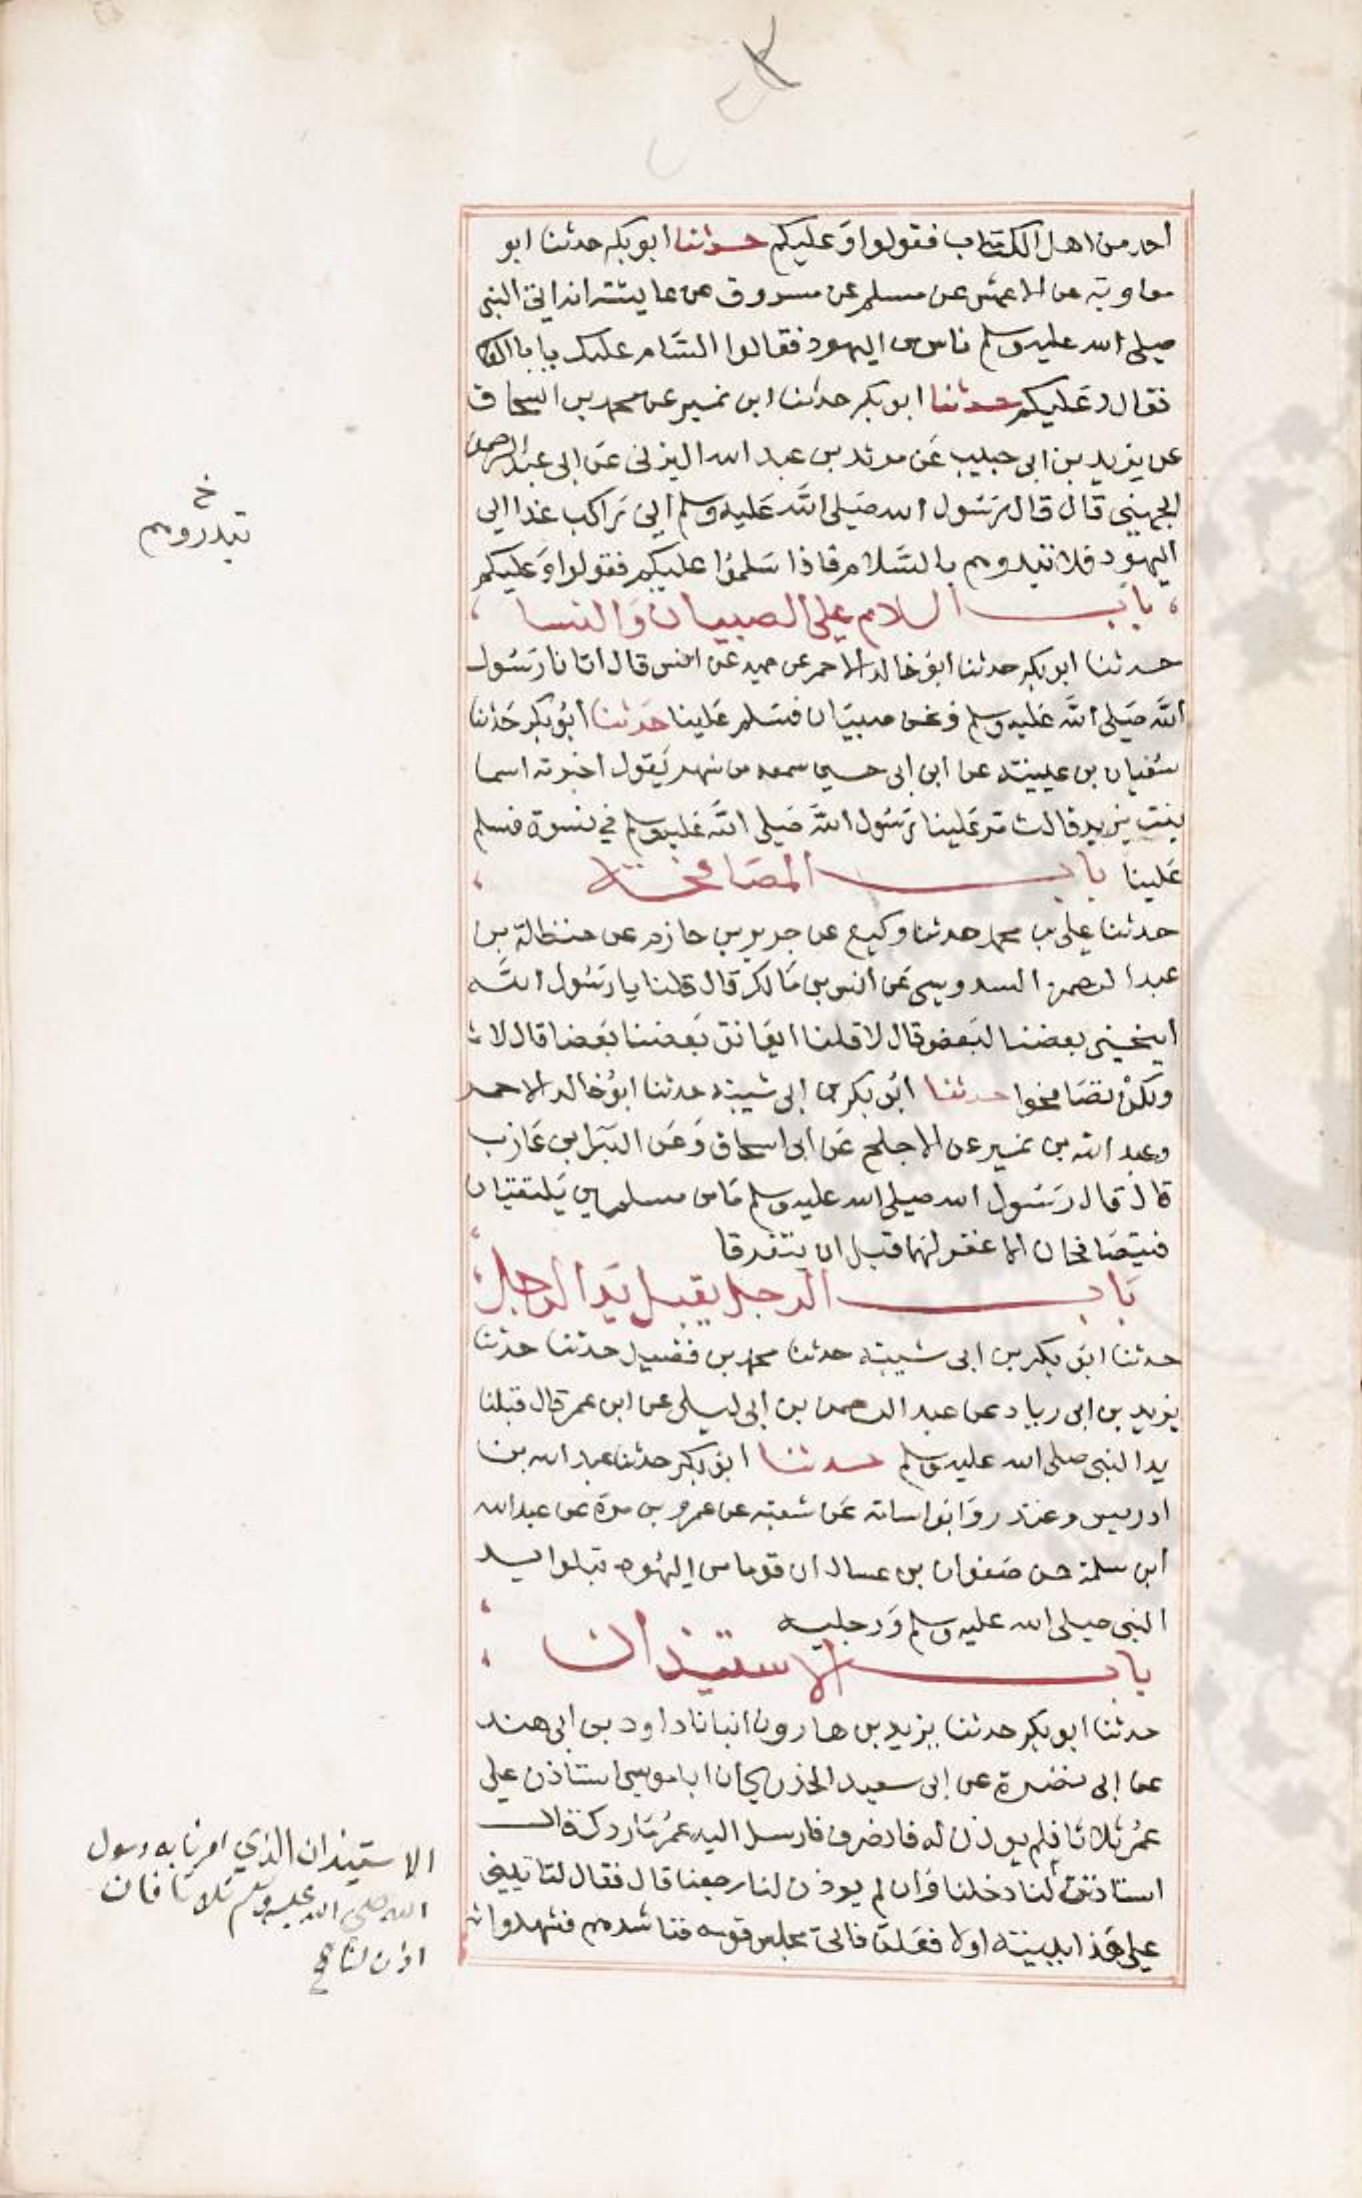 احد من اهل الكتاب فقولوا وَعليكم حدثنا ابوبكر حدثنا ابو
معاوية عن الاعمش عن مسلم عن مسروق عن عايشة انه اتى النبى
صلى الله عليه وسلم ناس من اليهود فقالوا السَّام عليك يا با القا
فقال وَعَليكم حدثنا ابو بكر حدثنا ابن نمير عن محمد بن اسحاق
عن يزيد بن ابى حبيب عَن مرثد بن عبد الله اليزنى عَن ابى عبد الرحمن
الجهنى قال قال رَسُول الله صَلى الله عَليه وسلم انى رَاكب غدا الى
اليهود فلا تبدوهم بالسَّلام فاذا سَلموُا عليكم فقولوا وَعَليكم
خ
تبدروهم
بَابُ السلام على الصبيان وَالنسا
حدثنا ابو بكر حدثنا ابوُ خالد الاحمر عن حميد عَن انس قال اتانا رَسُول
الله صَلى الله عَليه وسلم وَنحن صبيَان فسَلم عَلينا حَدثنا ابُو بكر حَدثنا
سُفيان بن عيينة عن ابن ابى حسين سمعه من شهر يَقول اخبرته اسما
بنت يزيد قالت مَر عَلينا رَسُول الله صَلى الله عَليه وسلم في نسوة فسلم
عَلينا باب المصَافحة
حدثنا على بن محمد حدثنا وكيع عن جرير بن حازم عن حنظلة بن
عبد الرحمن السدوسى عَن انس بن مَالك قال قلنا يا رَسُول الله
اينحنى بعضنا لبَعض قال لا قلنا ايعَانق بَعضنا بَعضا قال لا
ولكن تصَافحوا حدثنا ابُو بكر بن ابى شيبة حدثنا ابوُ خالد الاحمر
وعبد الله بن نمير عن الاجلح عَن ابى اسحاق وَعَن البَرا بن عَازب
قال قال رَسُول الله صلى الله عليه وسلم مَا من مسلمين يَلتقيَان
فيتصَافحان الا غفر لهما قبل ان يتفرقا
بَاب الرجل يقبل يَد الرجل
حدثنا ابو بكر بن ابى شيبة حدثنا محمد بن فضيل حدثنا حدثنا
يزيد بن ابى زياد عن عبد الرحمن بن ابى ليلى عن ابن عمر قال قبلنا
يد النبى صلى الله عليه وسلم حدثنا ابو بكر حدثنا عبد الله بن
ادريس وغندر وَابو اسامة عَن شعبة عن عمرو بن مرة عن عبد الله
ابن سلمة عن صَفوان بن عسال ان قوما من اليهُود قبلوا يد
النبى صلى الله عليه وسلم وَرجليه
باب الاستيذان
حدثنا ابو بكر حدثنا يزيد بن هارون انبانا داود بن ابى هند
عن ابى نضرة عن ابى سعيد الخدرى ان ابا موسى استاذن على
عمُر ثلاثا فلم يوذن له فانصرف فارسل اليه عمُر مَا ردك قال
استاذنت لنا دخلنا وَان لم يوذن لنا رجعنا قال فقال لتاتينى
على هَذا ببينة اولا فعَلت فاتى مجلس قومه فناشدهم فشهدوا له
الاستيذان الذي امرنا به رسول
الله صلى الله عليه وسلم ثلاثا فان
اذن لنا صح